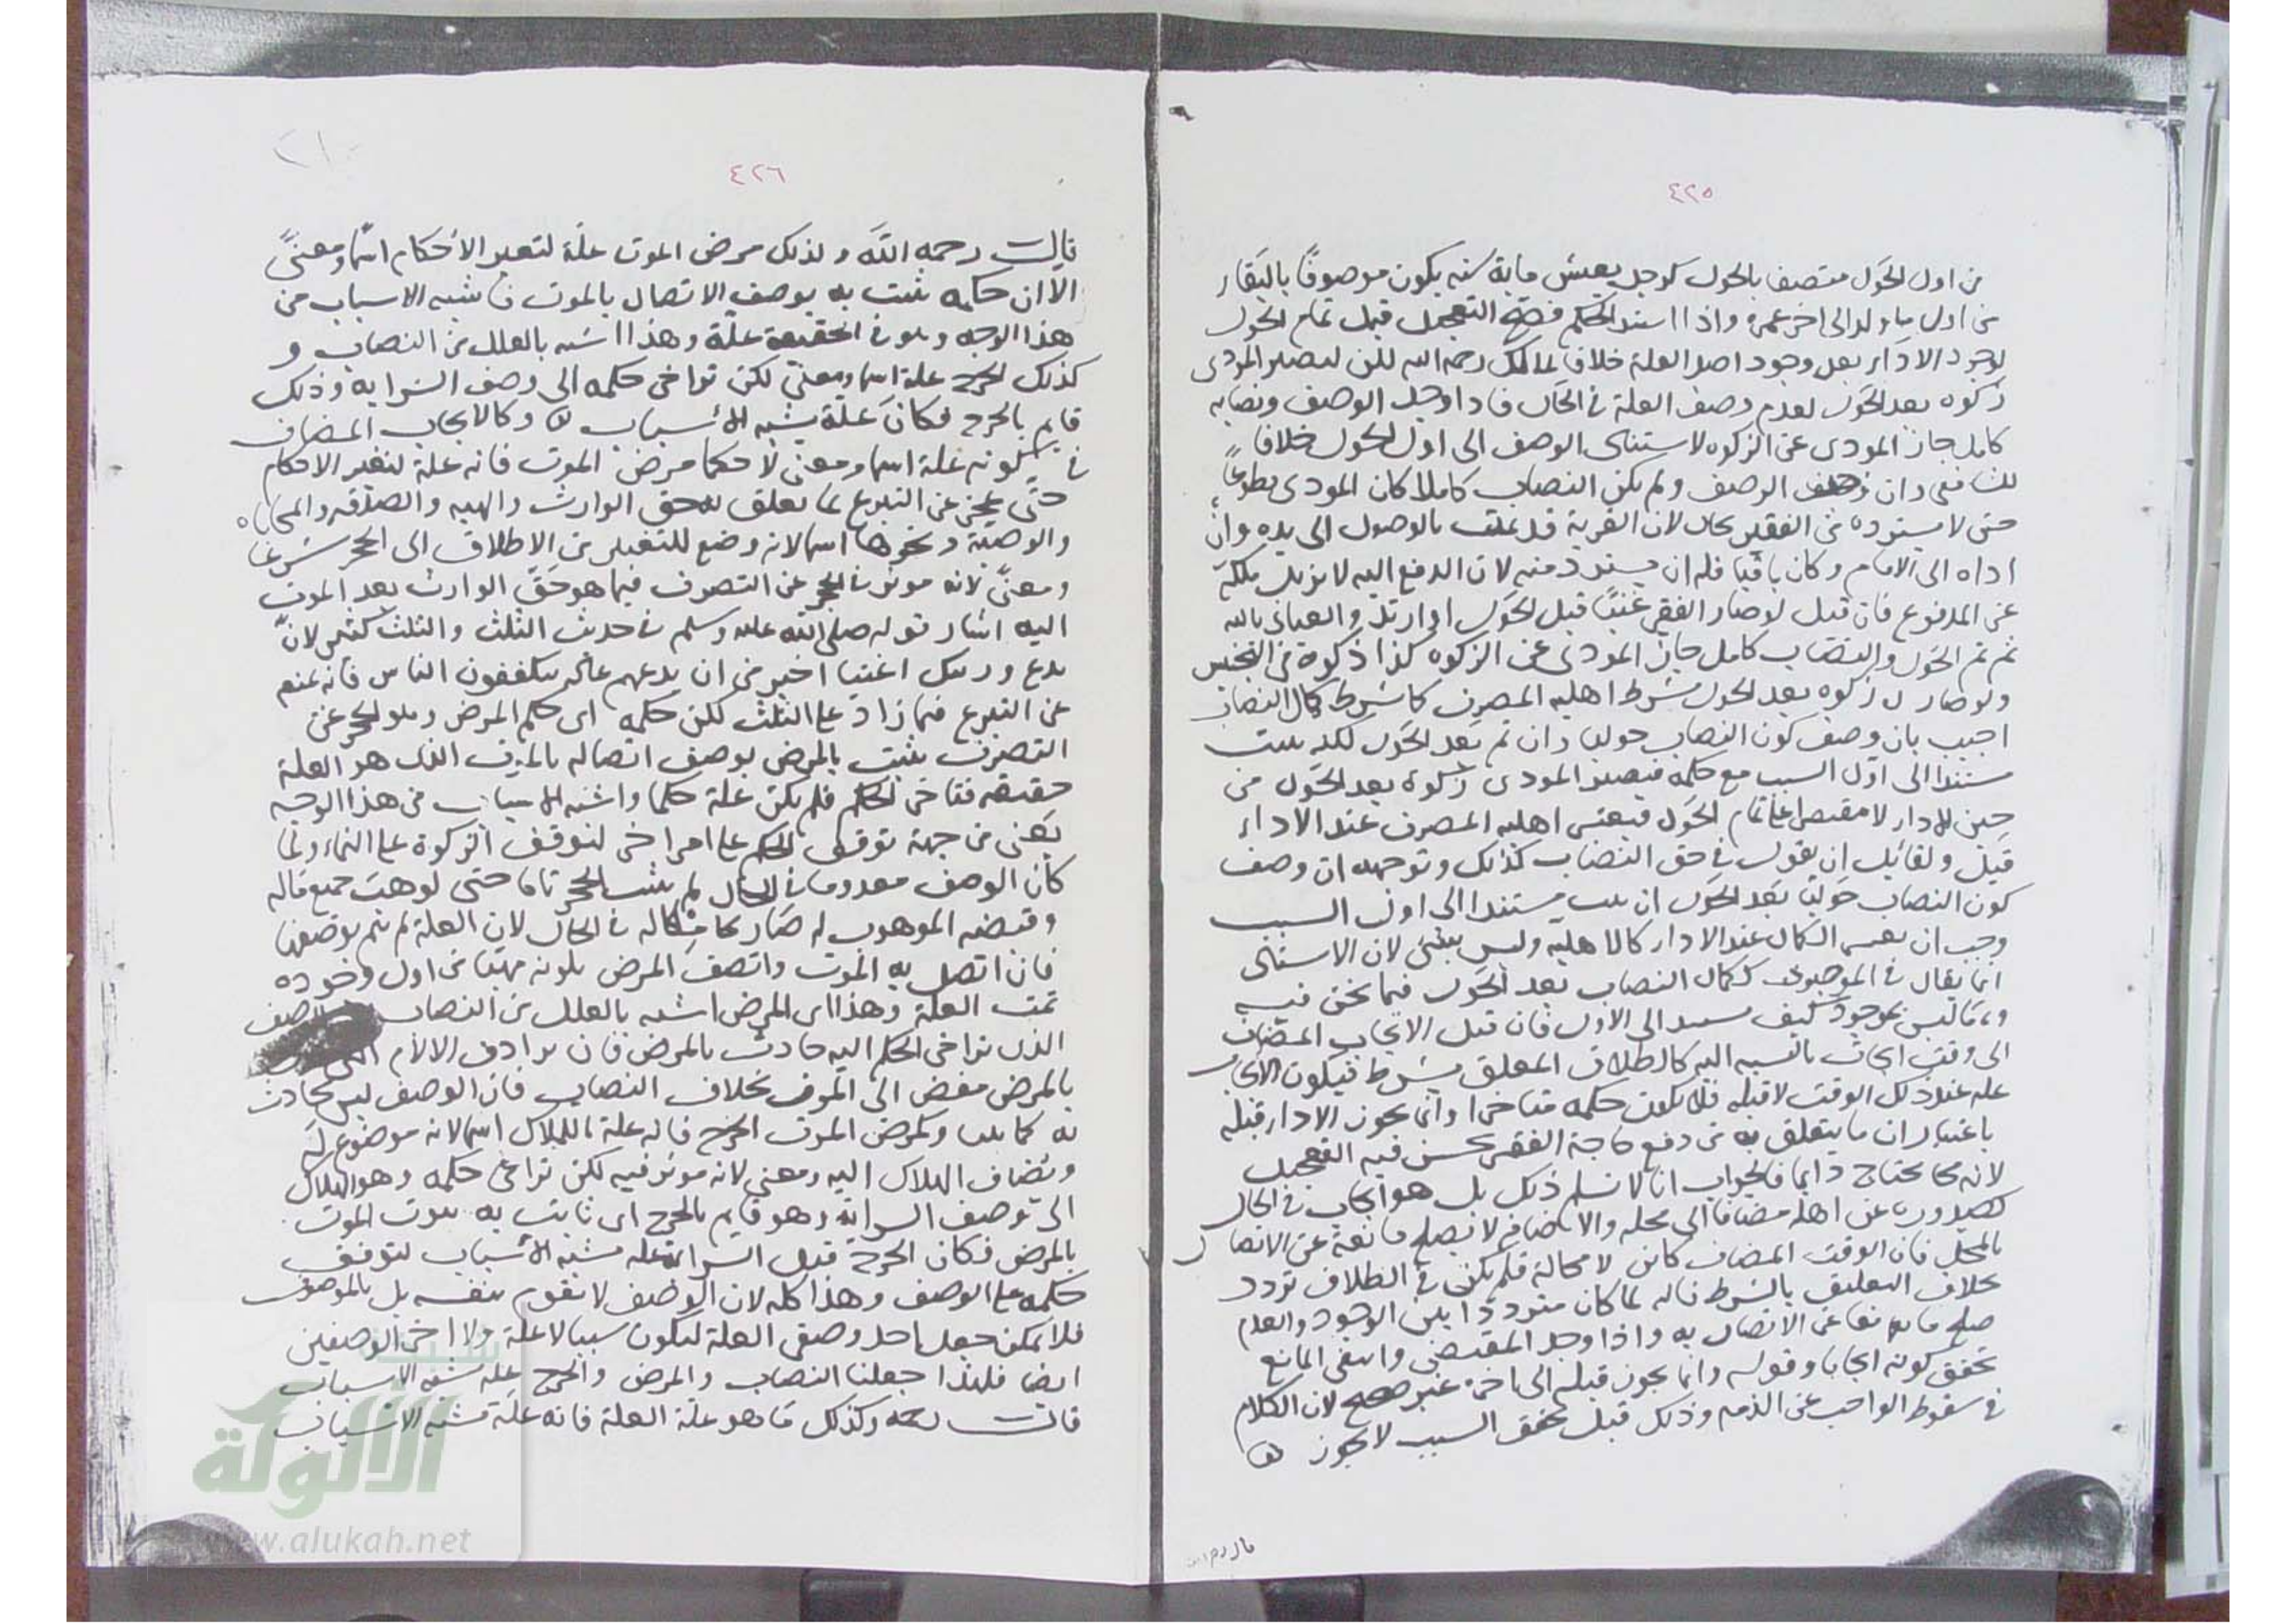 ٤٢٥
من اول الحول متصف بالحول كرجل يعيش ماية سنه يكون موصوفا بالبقاء
من اول ما ولد الى اخر عمره واذا استند الحكم فصح التعجيل قبل تمام الحول
لوجود الاداء بعد وجود اصل العلة خلافا لمالك رحمه الله لكن ليصير المودى
زكوه بعد الحول لعدم وصف العلة في الحال فاذا وجد الوصف ونصابه
كامل جاز المودى عن الزكوه لاستناد الوصف الى اول الحول خلافا
للشافعي وان وصف الوصف ولم يكن النصاب كاملا كان المودى تطوعا
حتى لا يسترده من الفقير بحال لان القربة قد تمت بالوصول الى يده وان
اداه الى الامام وكان باقيا فله ان يسترد منه لان الدفع اليه لا يزيل ملكه
عن المدفوع فان قيل لو صار الفقير غنيا قبل الحول او ارتد والعياذ بالله
ثم تم الحول والنصاب كامل جاز المودى عن الزكوه كذا ذكره في التجنيس
ولو صار زكوه بعد الحول شرط اهليه المصرف كما شرط كمال النصاب
اجيب بان وصف كون النصاب حوليا وان تم بعد الحول لكنه يثبت
مستندا الى اول السبب مع حكمه فيصير المودى زكوة بعد الحول من
حين الادا لا مقتصرا على تمام الحول فيعتبر اهليه المصرف عند الاداء
قيل ولقائل ان يقول في حق النصاب كذلك وتوجيهه ان وصف
كون النصاب حوليا بعد الحول ان يثبت مستندا الى اول السبب
وجب ان يعتبر الكمال عند الاداء كالاهليه وليس بشئ لان الاستناد
انما يقال في الموجود ككمال النصاب بعد الحول فيما نحن فيه
وما ليس بموجود كيف يستند الى الاول فان قيل الايجاب المضاف
الى وقت ايجاب بالنسبه اليه كالطلاق المعلق بشرط فيكون الايجاب
علة عند ذلك الوقت لا قبله فلا يكون حكمه متاخرا وانما يجوز الاداء قبله
باعتبار ان ما يتعلق به من دفع حاجة الفقير يحسن فيه التعجيل
لانه مما يحتاج دايما فالجواب انا لا نسلم ذلك بل هو ايجاب في الحال
لصدوره عن اهله مضافا الى محله والاضافه لا تصلح مانعة عن الاتصال
بالمحل فان الوقت المضاف كائن لا محالة فلم يكن في الطلاق تردد
بخلاف التعليق بالشرط فانه لما كان مترددا بين الوجود والعدم
صلح مانعا عن الاتصال به واذا وجد المقتضي وانتفى المانع
تحقق كونه ايجابا وقوله وانما يجوز قبله الى اخره غير صحيح لان الكلام
في سقوط الواجب عن الذمه وذلك قبل تحقق السبب لا يجوز
٤٢٦
قال رحمه الله وكذلك مرض الموت علة لتغير الاحكام اسما ومعنى
الا ان حكمه يثبت به بوصف الاتصال بالموت فاشبه الاسباب من
هذا الوجه وهو في الحقيقة علة وهذا اشبه بالعلل من النصاب و
كذلك الجرح علة اسما ومعنى لكن تراخى حكمه الى وصف السراية وذلك
قايم بالجرح فكان علة يشبه الاسباب وكالايجاب المضاف
في كونه علة اسما ومعنى لا حكما مرض الموت فانه علة لتغير الاحكام
حتى يحجر عن التبرع بما تعلق به حق الوارث والهبه والصدقه والمحاباه
والوصية ونحوها اسما لانه وضع للتغيير من الاطلاق الى الحجر شرعا
ومعنى لانه موثر في الحجر عن التصرف فيما هو حق الوارث بعد الموت
اليه اشار قوله صلى الله عليه وسلم في حديث الثلث والثلث كثير لان
تدع ورثتك اغنيا خير من ان تدعهم عالة يتكففون الناس فانه يمنع
عن التبرع فيما زاد على الثلث لكن حكمه اي حكم المرض وهو الحجر عن
التصرف يثبت بالمرض بوصف اتصاله بالموت الذي هو العلة
حقيقه فتاخر الحكم فلم يكن علة حكما واشبه الاسباب من هذا الوجه
يعني من جهة توقف الحكم على امر اخر كتوقف الزكوة على النماء ولما
كان الوصف معدوما في الحال لم يثبت الحجر تاما حتى لو وهب جميع ماله
وقبضه الموهوب له صار ملكا له في الحال لان العلة لم تتم بوصفها
فاذا اتصل به الموت واتصف المرض بكونه مميتا من اول وجوده
تمت العلة وهذا اي المرض اشبه بالعلل من النصاب الوصف
الذي تراخى الحكم اليه حادث بالمرض فان ترادف الالام
بالمرض مفض الى الموت بخلاف النصاب فان الوصف ليس بحادث
به كما بينا وكمرض الموت الجرح فانه علة للهلاك اسما لانه موضوع له
ويضاف الهلاك اليه ومعنى لانه موثر فيه لكن تراخى حكمه وهو الهلاك
الى توصيف السراية وهو قايم بالجرح اي ثابت به ثبوت الموت
بالمرض فكان الجرح قبل السراية علة تشبه الاسباب لتوقف
حكمه على الوصف وهذا كله لان الوصف لا يقوم بنفسه بل بالموصوف
فلا يمكن جعل احد وصفي العلة ليكون سببا لا علة ولا اخر الوصفين
ايضا فلهذا جعلنا النصاب والمرض والجرح علة تشبه الاسباب
قال رحمه وكذلك ما هو علة العلة فانه علة تشبه الاسباب
الألوكة
www.alukah.net